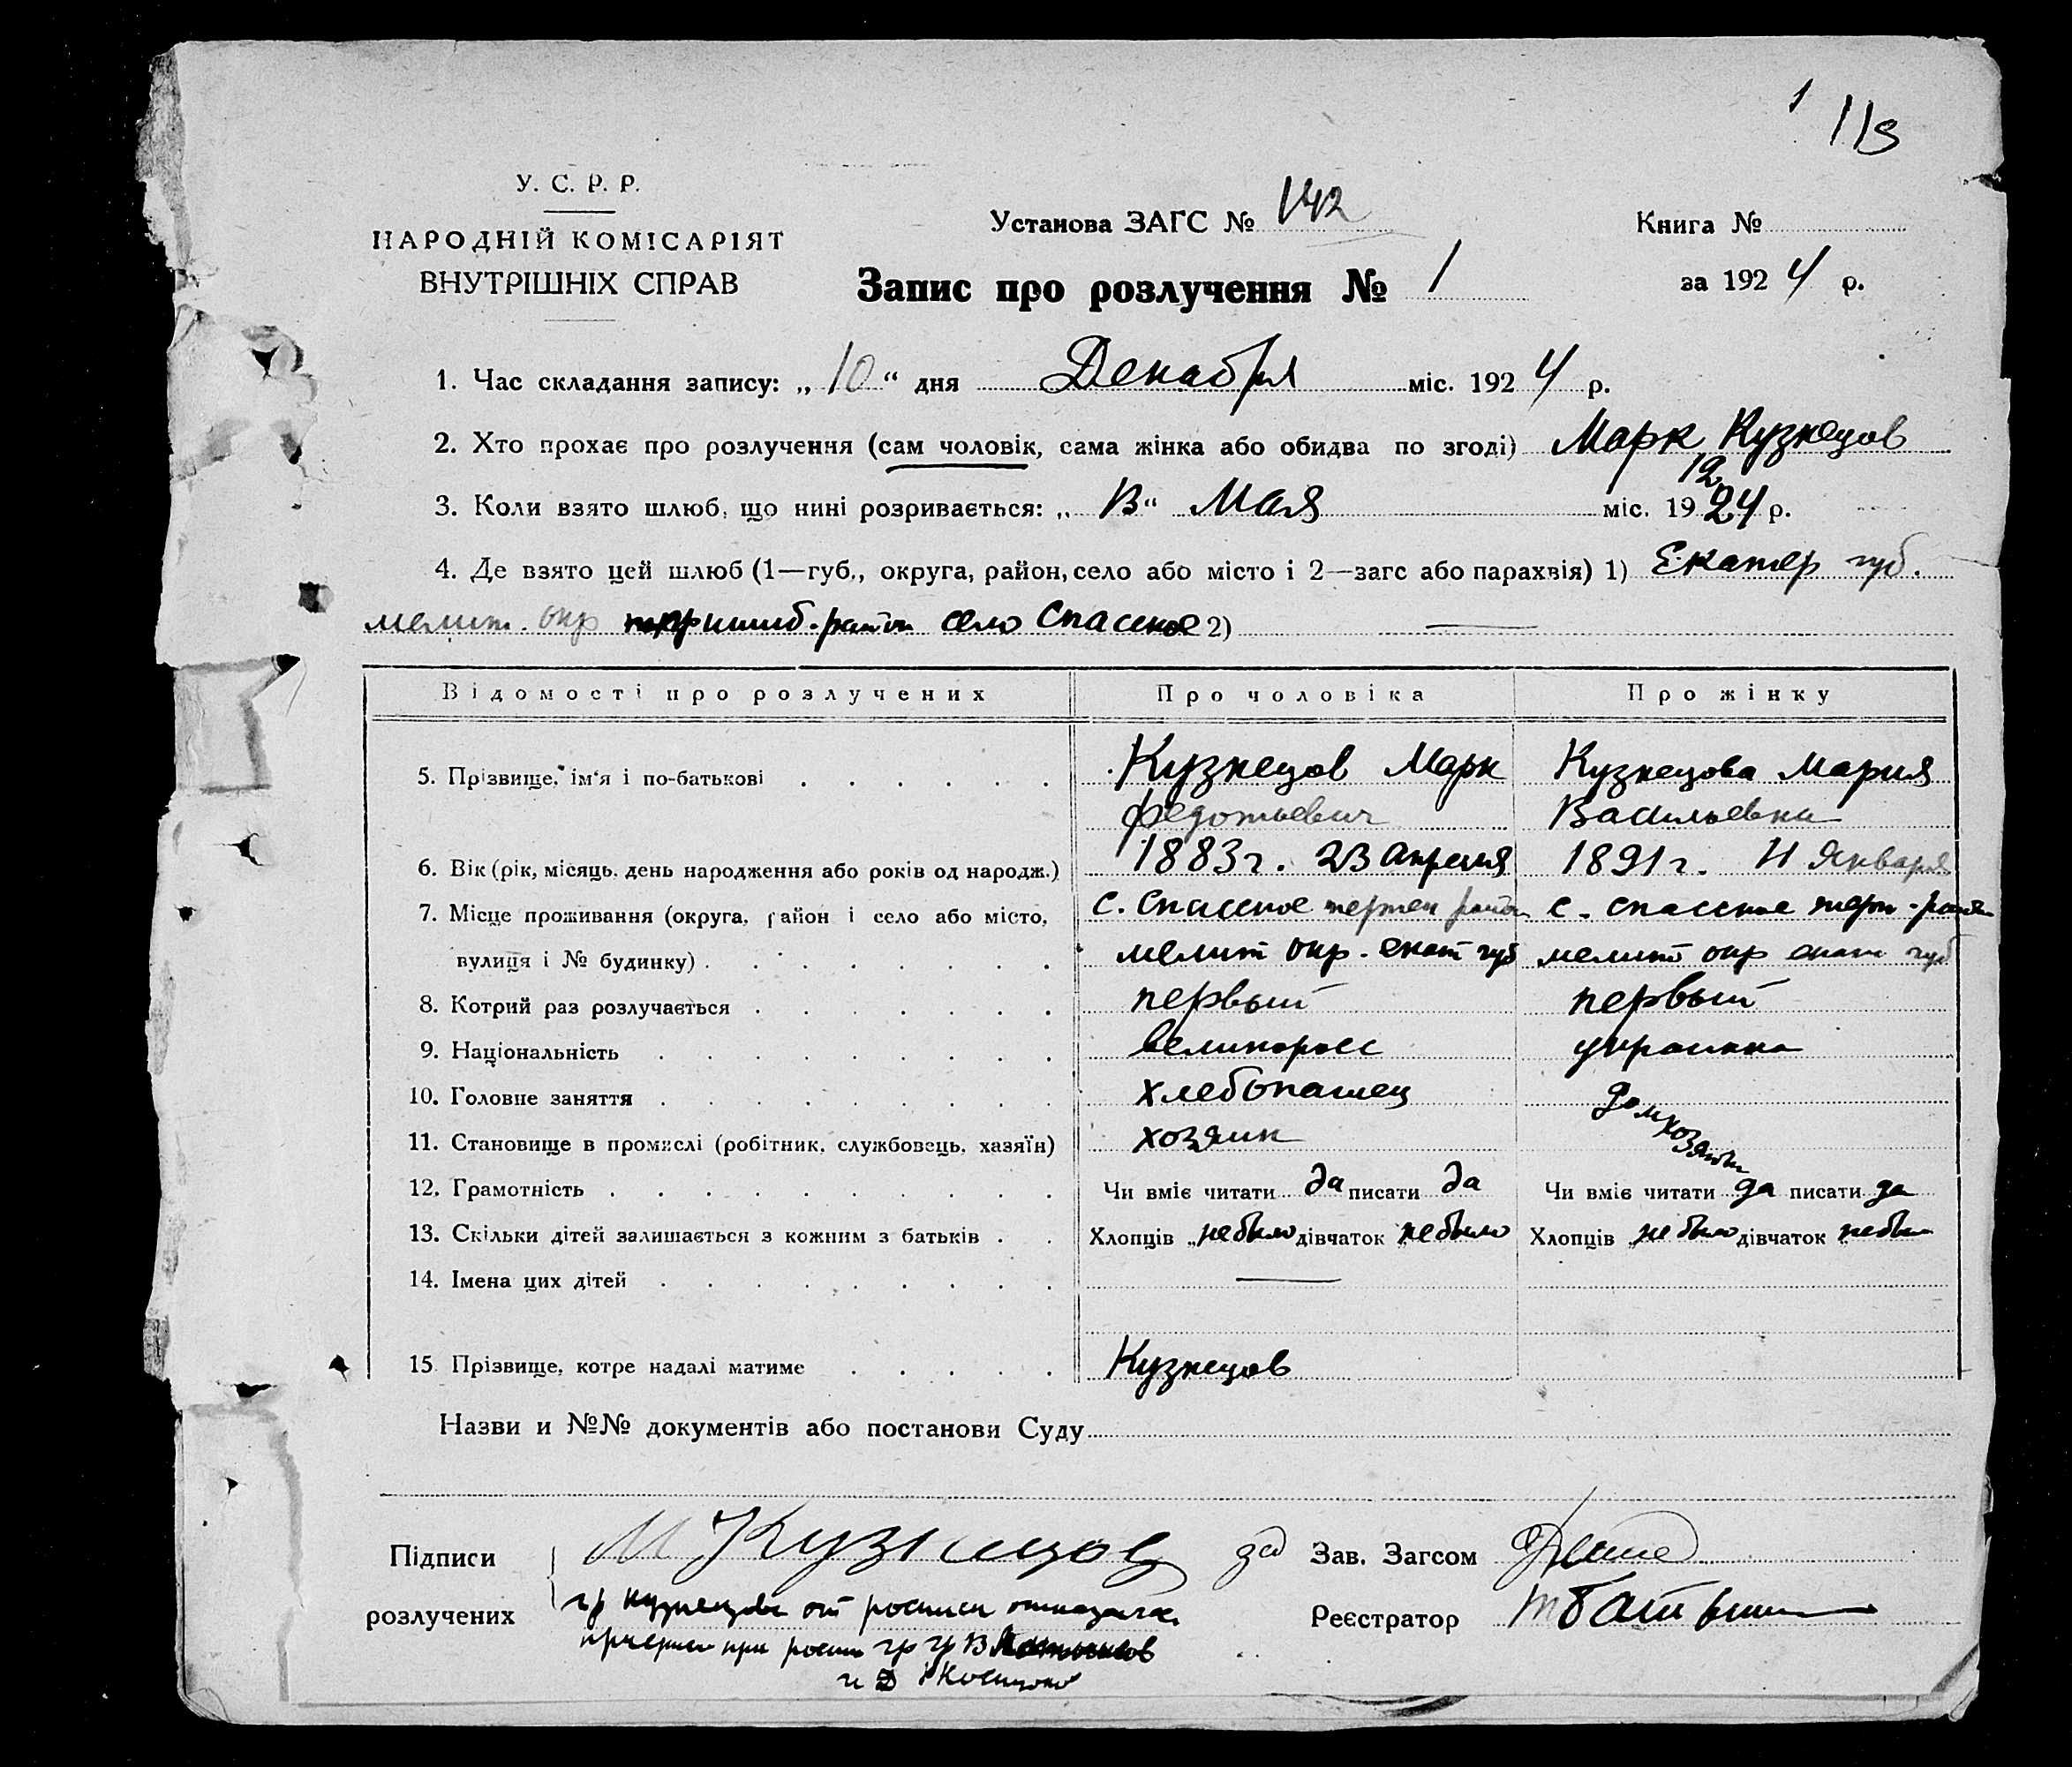 1
113
У. С. Р. Р.
НАРОДНІЙ КОМІСАРІЯТ
ВНУТРІШНІХ СПРАВ
Установа ЗАГС № 142
Книга №
Запис про розлучення № 1
за 1924 р.
1. Час складання запису: „10“ дня Декабря міс. 1924 р.
2. Хто прохає про розлучення (сам чоловік, сама жінка або обидва по згоді) Марк Кузнецов
12
3. Коли взято шлюб, що нині розривається: „13“ Мая міс. 1924 р.
4. Де взято цей шлюб (1—губ., округа, район, село або місто і 2—загс або парахвія) 1) Екатер губ.
мелит. окр пришиб. район село Спасское 2) —
Відомості про розлучених Про чоловіка Про жінку
5. Прізвище, ім‘я і по-батькові Кузнецов Марк Кузнецова Мария
Федотьевич Васильевна
6. Вік (рік, місяць, день народження або років од народж.) 1883 г. 23 апреля 1891 г. 11 Января
7. Місце проживання (округа, район і село або місто, с. Спасское район с. спасское район
вулиця і № будинку) мелит окр. екат губ мелит окр екат губ
8. Котрий раз розлучається первый первый
9. Національність великоросс украинка
10. Головне заняття хлебопашец домхозяйка
11. Становище в промислі (робітник, службовець, хазяїн) хозяин
12. Грамотність Чи вміє читати да писати да Чи вміє читати да писати да
13. Скільки дітей залишається з кожним з батьків Хлопців не было дівчаток не было Хлопців не было дівчаток не было
14. Імена цих дітей —
15. Прізвище, котре надалі матиме Кузнецов
Назви и №№ документів або постанови Суду
Підписи М Кузнецов за Зав. Загсом
розлучених гр Кузнецова от росписи отказалась Реєстратор
при гр гр В
и Д